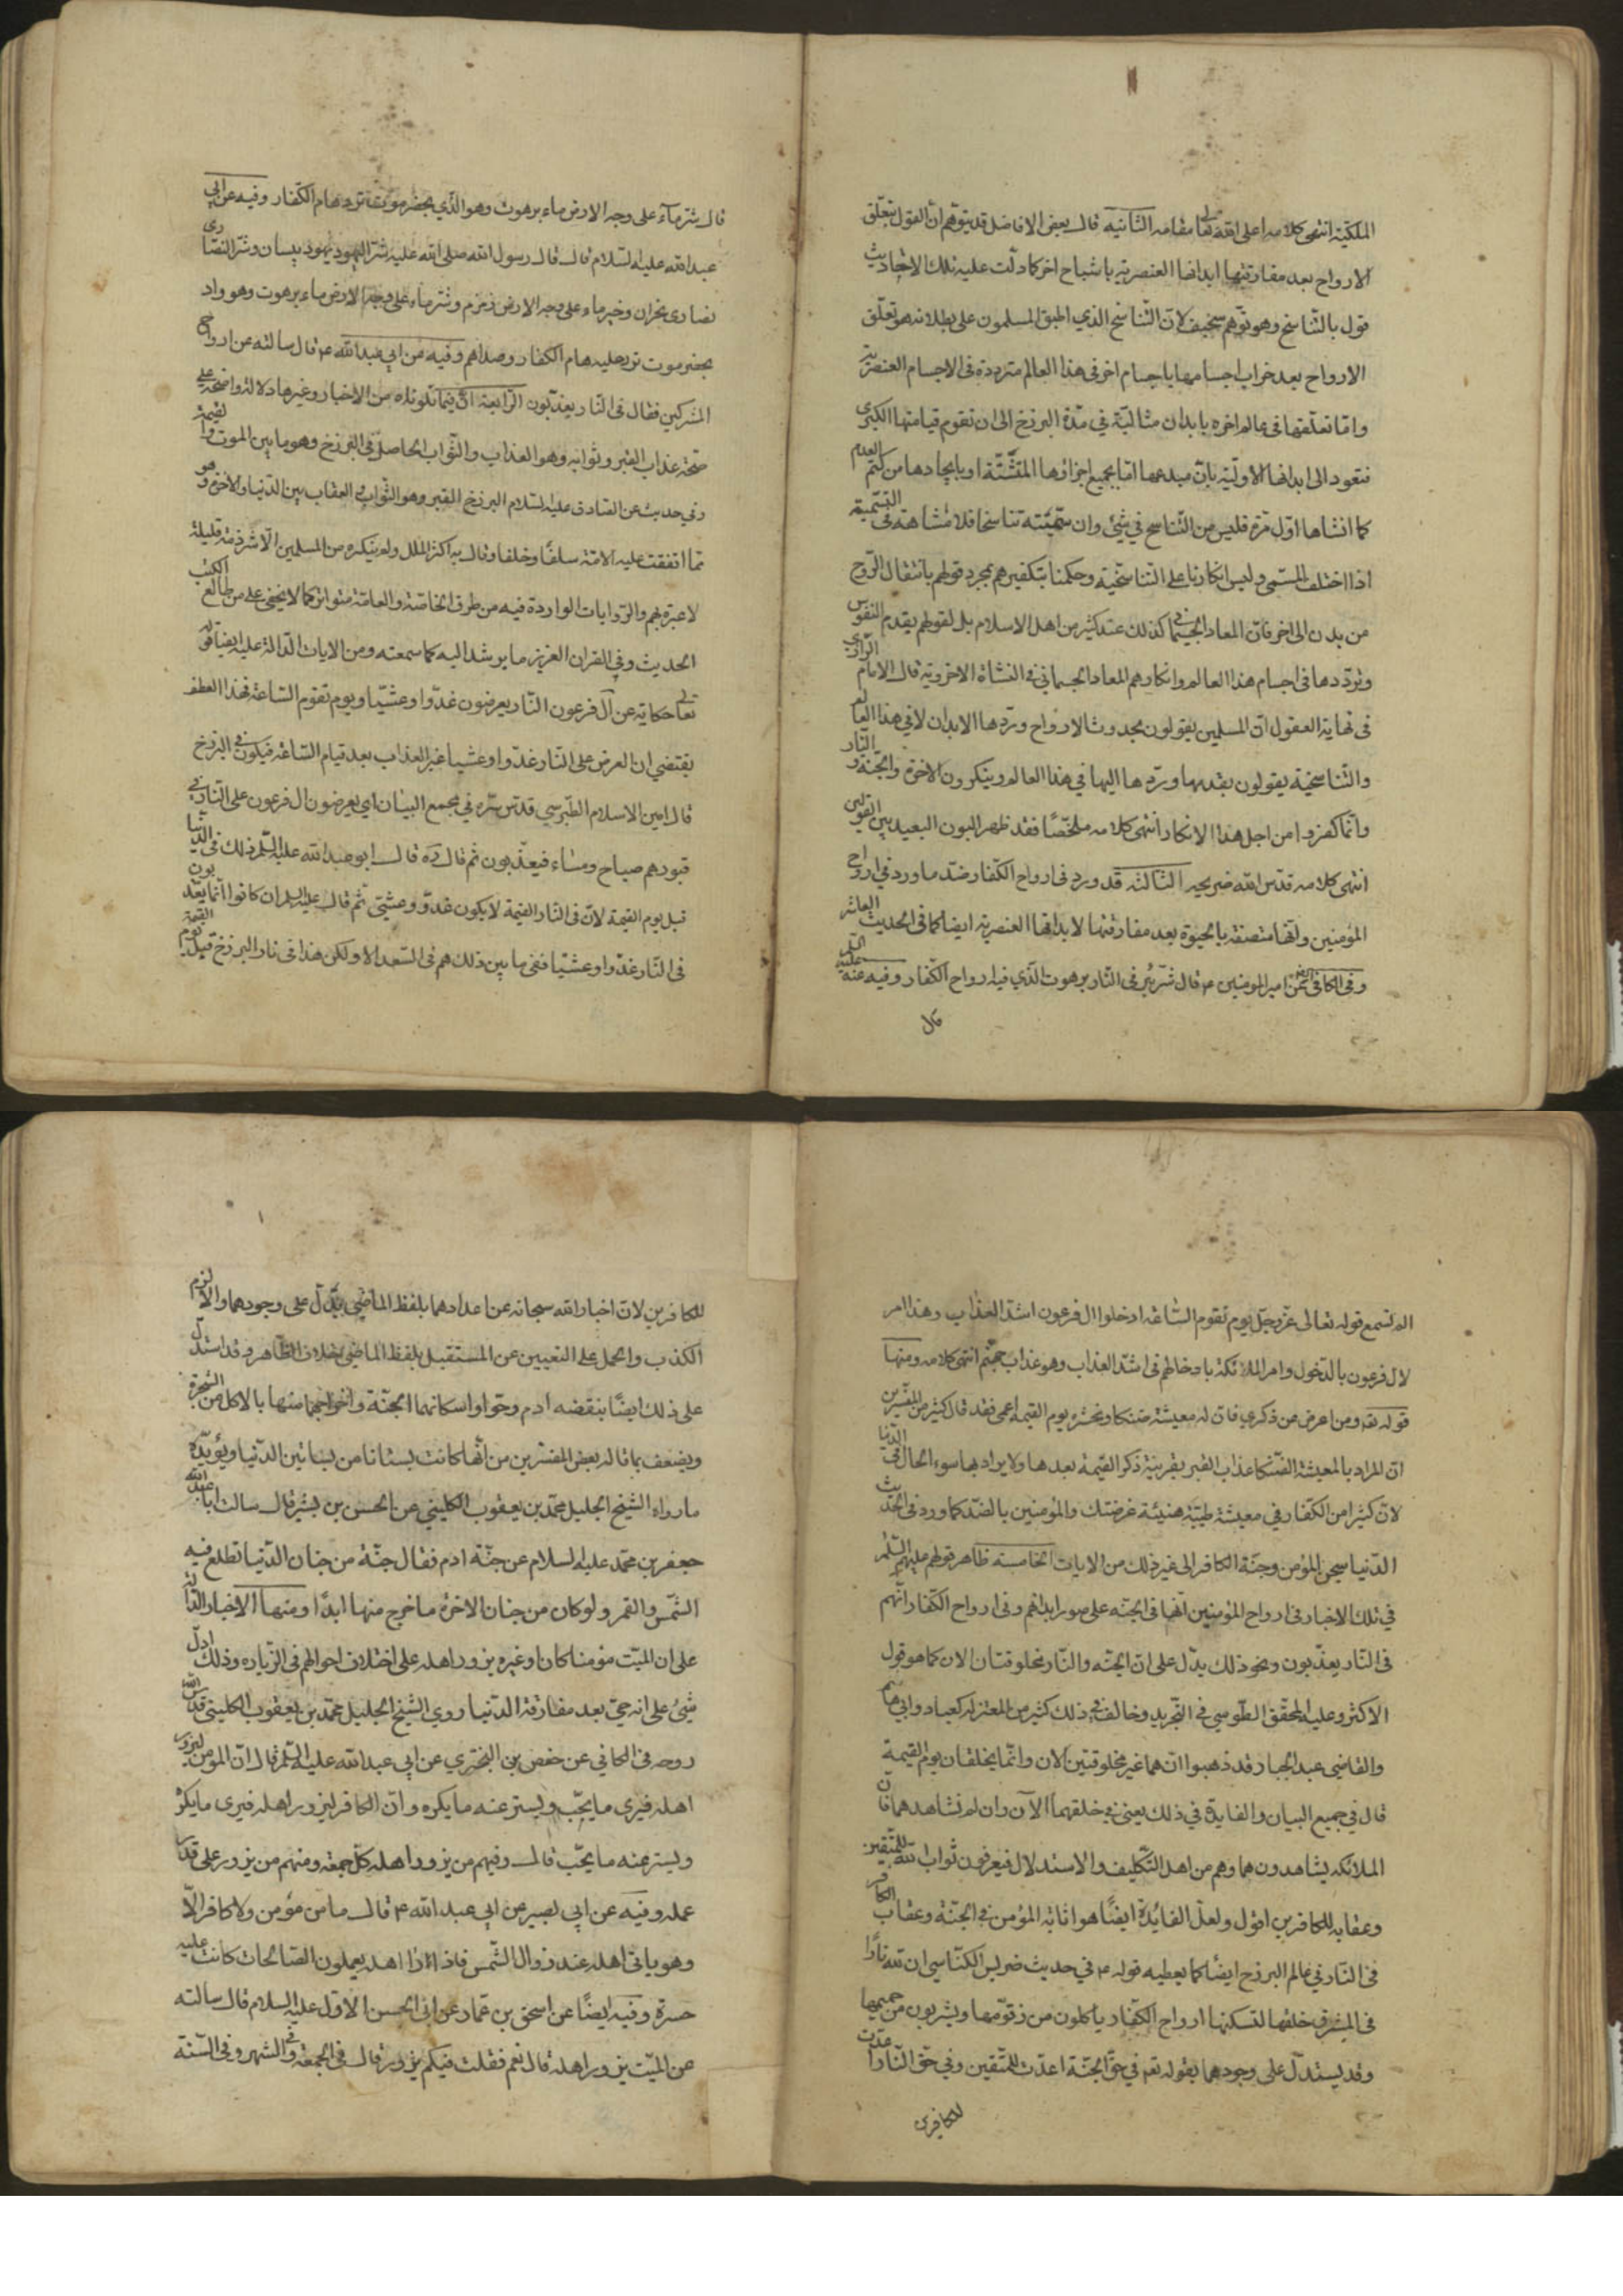 الملكية انتهى كلامه اعلى الله تعالى مقامه الثانيه قال بعض الافاضل قد يتوهم ان القول بتعلق
الارواح بعد مفارقتها ابدانها العنصرية باشباح اخر كما دلت عليه تلك الاحاديث
قول بالتناسخ وهو توهم سخيف لان التناسخ الذي اطبق المسلمون على بطلانه هو تعلق
الارواح بعد خراب اجسامها باجسام اخر في هذا العالم مترددة فى الاجسام العنصرية
واما تعلقها فى عالم اخره بابدان مثالية في مدة البرزخ الى ان تقوم قيامتها الكبرى
فتعود الى ابدانها الاولية باذن مبدعها اما بجميع اجزاؤها المتشتتة او بايجادها من كتم العدم
كما انشاها اول مرة فليس من التناسخ في شئ وان سميته تناسخا فلا مشاحة فى التسمية
اذا اختلف المسمى وليس انكارنا على التناسخية وحكمنا بتكفيرهم بمجرد قولهم بانتقال الروح
من بدن الى اخر فان المعاد الجسمانى كذلك عند كثير من اهل الاسلام بل لقولهم بقدم النفوس
وتردّدها فى اجسام هذا العالم وانكارهم المعاد الجسماني فى النشاة الاخروية قال الامام الرازى
فى نهاية العقول ان المسلمين يقولون بحدوث الارواح وردها الابدان لا في هذا العالم
والتناسخية يقولون بقدمها وردها اليها في هذا العالم وينكرون الاخرة والجنة والنار
وانما كفروا من اجل هذا الانكار انتهى كلامه ملخصًا فقد ظهر البون البعيد بين القولين
انتهى كلامه قدس الله ضريحه الثالثه قد ورد فى ارواح الكفار ضد ما ورد في ارواح
المؤمنين وانها متصفة بالحيوة بعد مفارقتها لابدانها العنصرية ايضا كما فى الحديث العاشر
وفى الكافى عن امير المومنين ع قال شر بئر فى النار برهوت الذي فيه ارواح الكفار وفيه عنه عليه السلم
قال
قال شر ماء على وجه الارض ماء برهوت وهو الذي بحضرموت ترده هام الكفار وفيه عن ابي
عبد الله عليه السلام قال قال رسول الله صلى الله عليه شر اليهود يهود بيسان وشر النصارى
نصارى نجران وخير ماء على وجه الارض زمزم وشر ماء على وجه الارض ماء برهوت وهو واد
بحضرموت ترد عليه هام الكفار وصداهم وفيه عن ابي عبد الله ع قال سالته عن ارواح
المشركين فقال فى النار يعذبون الرابعة ان فيما تلوناه من الاخبار وغيرها دلالة واضحة على
صحة عذاب القبر وثوابه وهو العذاب والثواب الحاصل فى البرزخ وهو ما بين الموت والقيمة
وفي حديث عن الصادق عليه السلام البرزخ القبر وهو الثواب و العقاب بين الدنيا والاخرة وهو
مما اتفقت عليه الامة سلفًا وخلفا وقال به اكثر الملل ولم ينكره من المسلمين الا شرذمة قليلة
لا عبرة بهم والروايات الواردة فيه من طرق الخاصة والعامة متواترة كما لا يخفى على من طالع الكتب
الحديث وفي القران العزيز ما يرشد اليه كما سمعته ومن الايات الدالة عليه ايضا قوله
تعالى حكاية عن آل فرعون النار يعرضون عليها غدوا وعشيا ويوم تقوم الساعة فهذا العطف
يقتضي ان العرض على النار غدوا وعشيا غير العذاب بعد قيام الساعة فيكون فى البرزخ
قال امين الاسلام الطبرسي قدس سره في مجمع البيان اى يعرضون ال فرعون على النار فى
قبورهم صباح ومساء فيعذبون ثم قال ره قال ابو عبد الله عليه السلم ذلك فى الدنيا
قبل يوم القيمة لان فى النار القيمة لا يكون غدو وعشي ثم قال عليه السلم ان كانوا انما يعذبون
فى النار غدوا وعشيا ففى ما بين ذلك هم فى السعداء لا ولكن هذا فى نار البرزخ قبل يوم القيمة
الم تسمع قوله تعالى عز وجل يوم تقوم الساعة ادخلوا ال فرعون اشد العذاب وهذا امر
لال فرعون بالدخول وامر الملائكة بادخالهم فى اشد العذاب وهو عذاب جهنم انتهى كلامه ومنها
قوله تع ومن اعرض عن ذكري فان له معيشة ضنكا ونحشره يوم القيمة اعمى فقد قال كثير من المفسرين
ان المراد بالمعيشة الضنك عذاب القبر بقرينة ذكر القيمة بعدها ولا يراد بها سوء الحال فى الدنيا
لان كثيرا من الكفار في معيشة طيبة هنيئة غير ضنك والمؤمنين بالضد كما ورد فى الحديث
الدنيا سجن المؤمن وجنة الكافر الى غير ذلك من الايات الخامسة ظاهر قولهم عليهم السلم
في تلك الاخبار فى ارواح المؤمنين انها فى الجنة على صور ابدانهم وفى ارواح الكفار انهم
فى النار يعذبون ونحو ذلك يدل على ان الجنة والنار مخلوقتان الان كما هو قول
الاكثر وعليه المحقق الطوسي في التجريد وخالف في ذلك كثير من المعتزلة كعباد وابى هاشم
والقاضي عبد الجبار فقد ذهبوا ان هما غير مخلوقتين الان وانما يخلقان يوم القيمة
قال في جميع البيان والفايدة في ذلك يعنى في خلقهما الآن وان لم نشاهدهما فان
الملائكة يشاهدون هما وهم من اهل التكليف والاستدلال فيعرفون ثواب الله للمتقين
وعقابه للكافرين اقول ولعل الفايدة ايضًا هو اثابة المؤمن في الجنة وعقاب الكافر
فى النار في عالم البرزخ ايضا كما يعطيه قوله ع في حديث ضريس الكناسي ان لله نارا
فى المشرق خلقها لتسكنها ارواح الكفار ياكلون من زقومها ويشربون من حميمها
وقد يستدل على وجودهما بقوله تع في حق الجنة اعدت للمتقين وفي حق النار اعدت
للكافرين
للكافرين لان اخبار الله سبحانه عن اعدادهما بلفظ الماضي يدل على وجودهما والا لزم
الكذب والحمل على التعبير عن المستقبل بلفظ الماضي خلاف الظاهر وقد استدل
على ذلك ايضًا بنقضه ادم وحوا واسكانهما الجنة واخراجهما منها بالاكل من الشجرة
ويضعف بما قاله بعض المفسرين من انها كانت بستانا من بساتين الدنيا ويؤيده
ما رواه الشيخ الجليل محمد بن يعقوب الكليني عن الحسن بن بشر قال سالت ابا عبد الله
جعفر بن محمد عليه السلام عن جنة ادم فقال جنة من جنان الدنيا تطلع فيه
الشمس والقمر ولو كان من جنان الاخرة ما خرج منها ابدًا ومنها الاخبار الدالة
على ان الميت مؤمنا كان او غيره يزور اهله على اختلاف احوالهم فى الزيارة وذلك ادل
شئ على انه حي بعد مفارقة الدنيا روي الشيخ الجليل محمد بن يعقوب الكليني قدس الله
روحه فى الكافي عن حفص بن البختري عن ابي عبد الله عليه السلم قال ان المؤمن ليزور
اهله فيرى ما يحب ويستر عنه ما يكره وان الكافر ليزور اهله فيرى ما يكره
ويستر عنه ما يحب قال وفيهم من يزور اهله كل جمعة ومنهم من يزور على قدر
عمله وفيه عن ابي بصير عن ابي عبد الله ع قال ما من مؤمن ولا كافر الا
وهو ياتى اهله عند زوال الشمس فاذا راى اهله يعملون الصالحات كانت عليه
حسرة وفيه ايضًا عن اسحق بن عمار عن ابى الحسن الاول عليه السلام قال سالته
عن الميت يزور اهله قال نعم فقلت فيكم يزور قال فى الجمعة و فى الشهر وفى السنة